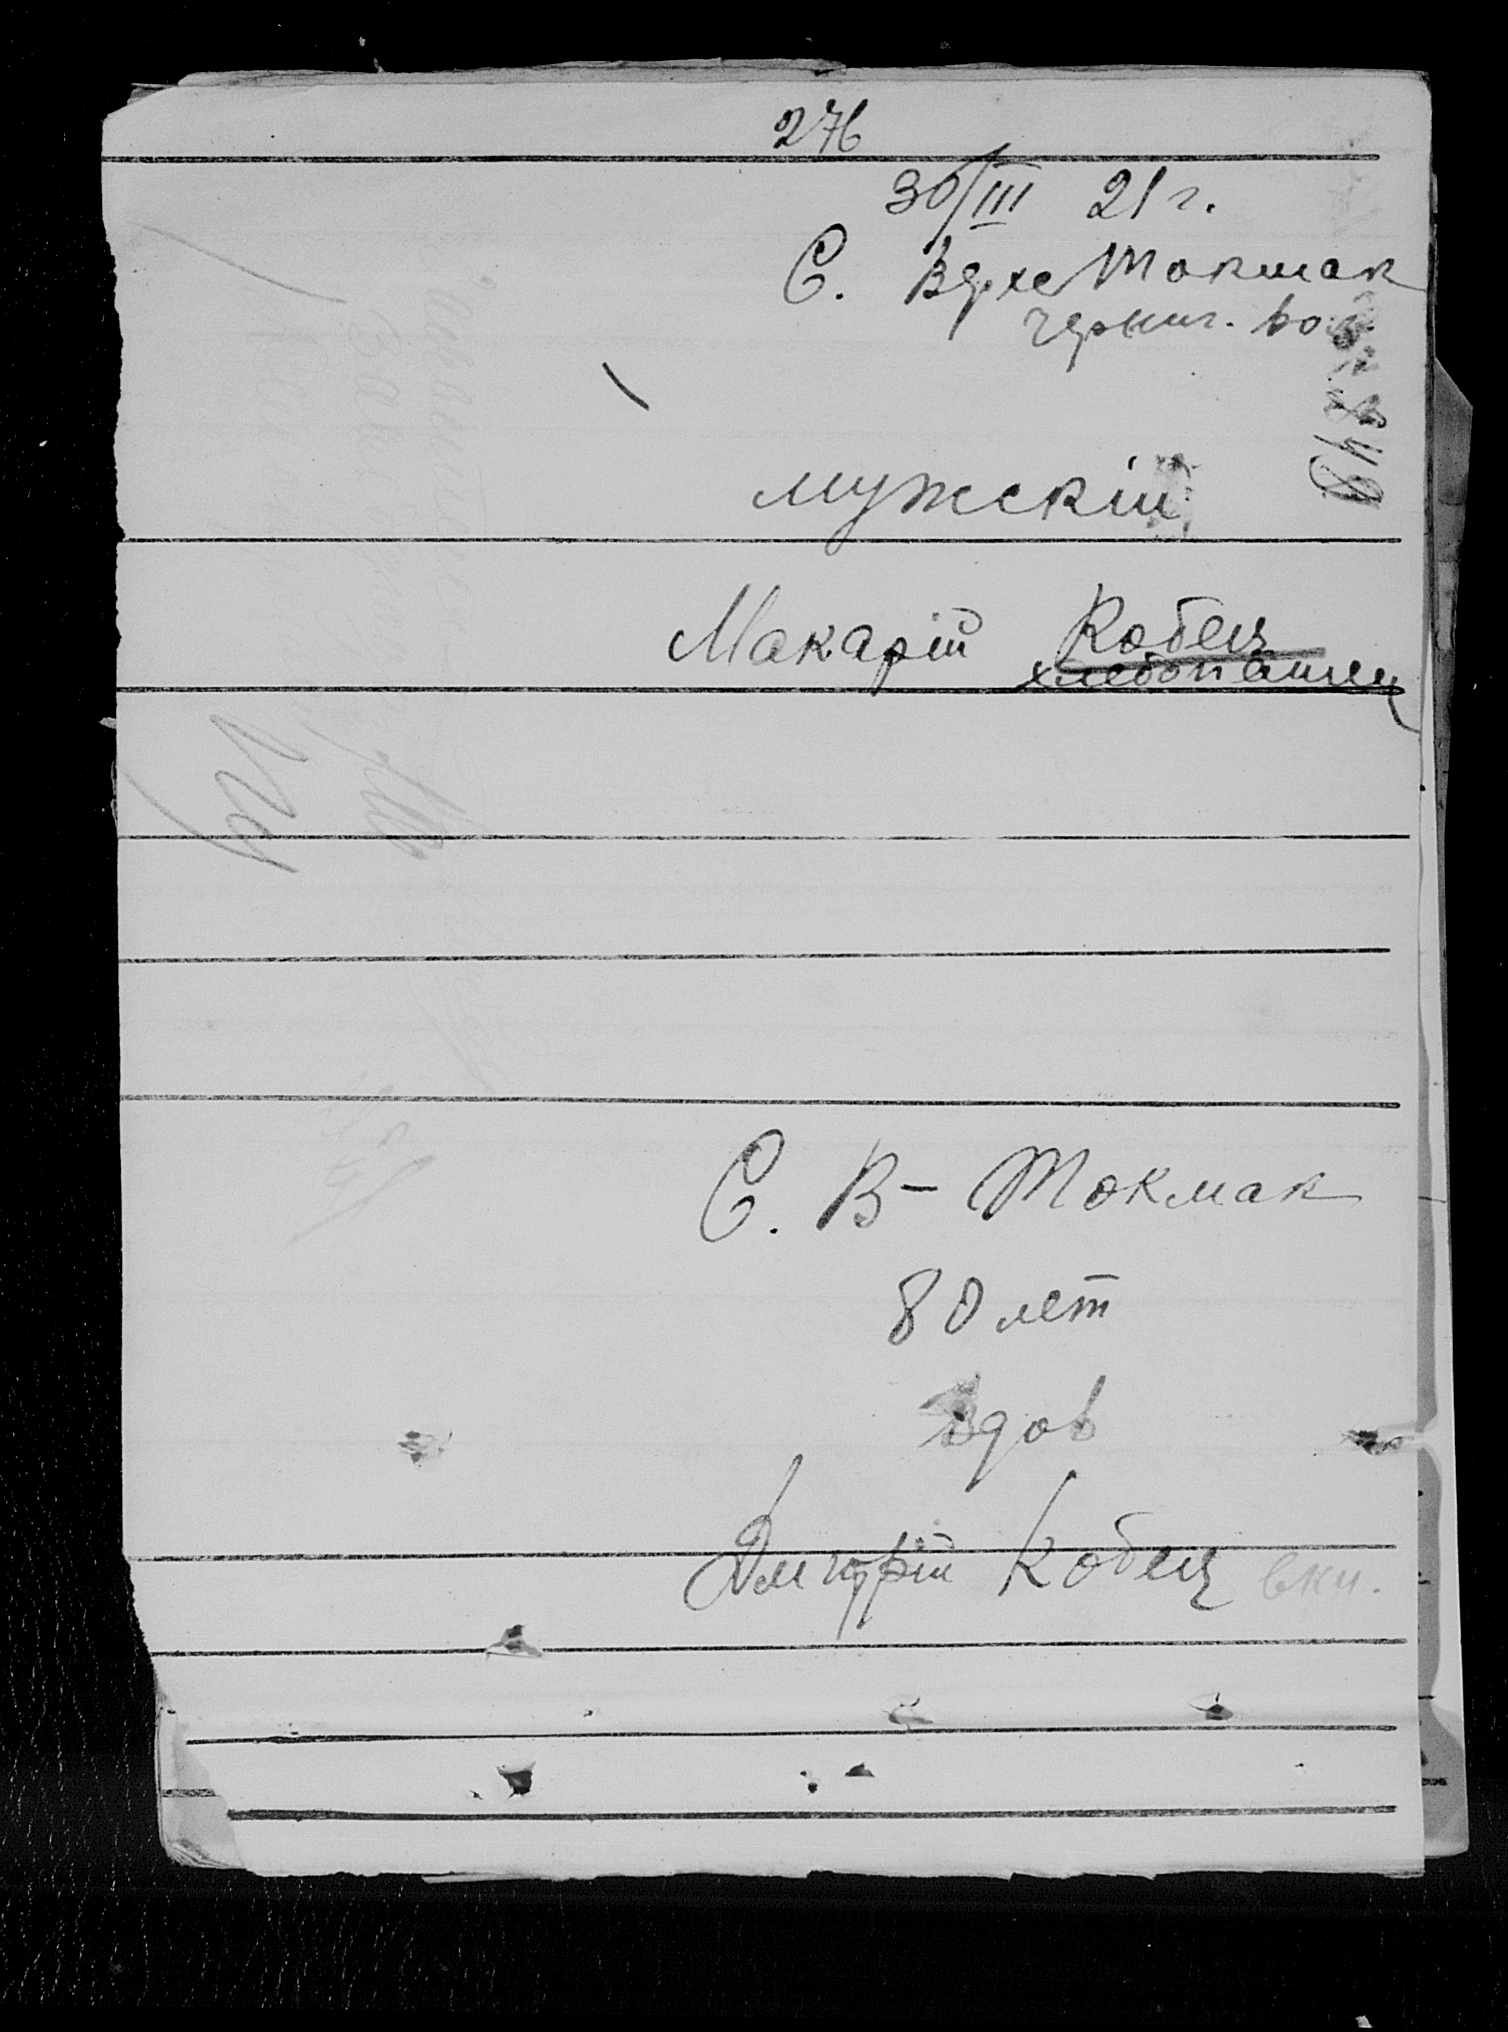 276
30/III 21 г.
С. Верхе Токмак
черниг. вол.
849
мужскій
Макарій Кобец
хлебопашец
С. В- Токмак
80 лет
вдов
Дмитрій Кобец